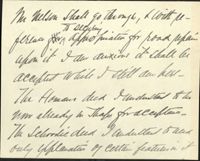 Mr Nelson shall go through, & with re-
ference for approbation for road repair
upon it. I am anxious it shall be
accepted while I still am here.
The Homans deed I understand to be
now already in shape for acceptance.
The Schoodic deed I understand to need
only explanation of certain features in it